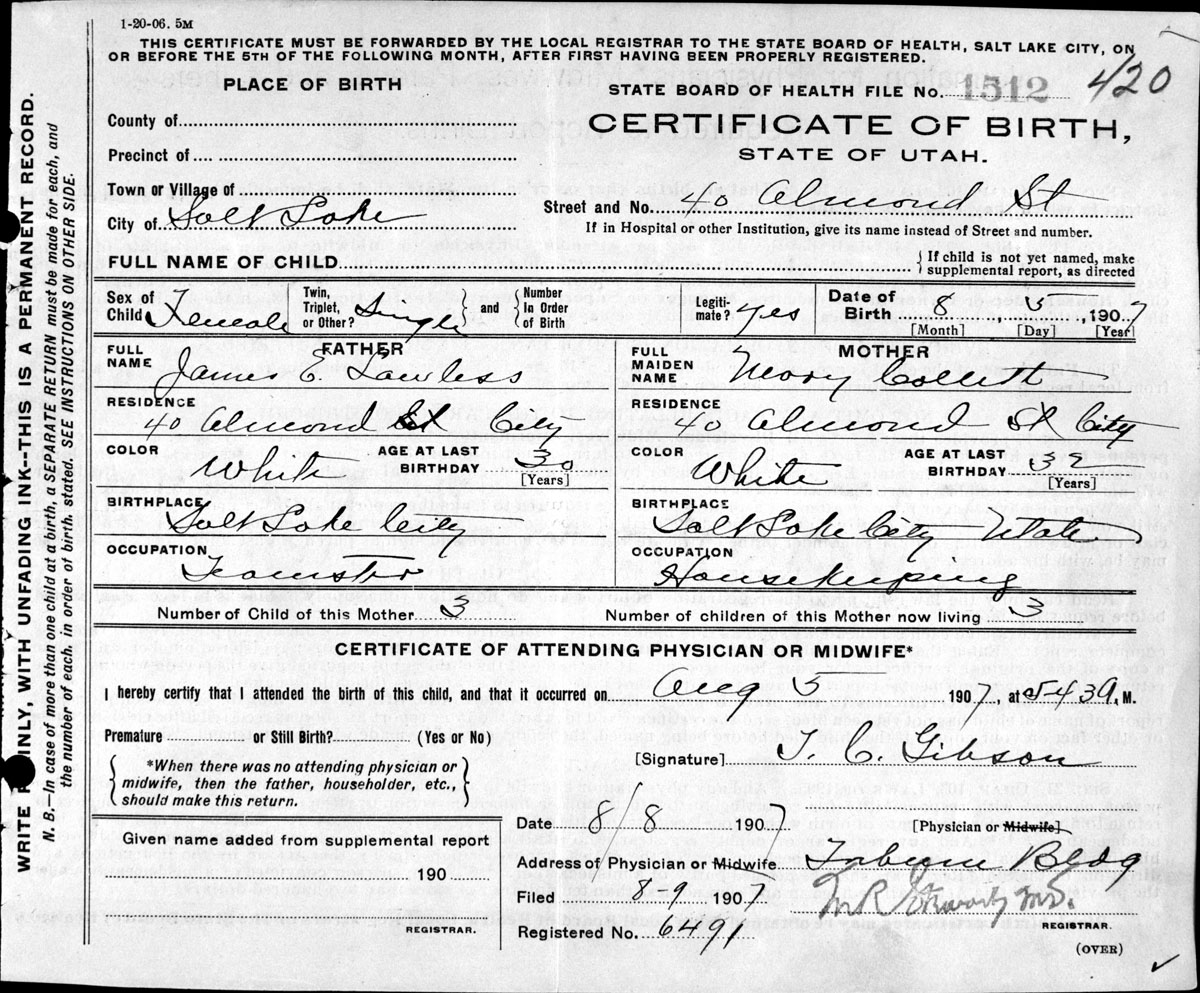 1-20-06. 5M
THIS CERTIFICATE MUST BE FORWARDED BY THE LOCAL REGISTRAR TO THE STATE BOARD OF HEALTH, SALT LAKE CITY, ON
OR BEFORE THE 5TH OF THE FOLLOWING MONTH, AFTER FIRST HAVING BEEN PROPERLY REGISTERED.
PLACE OF BIRTH
STATE BOARD OF HEALTH FILE No. 1512 420
County of
CERTIFICATE OF BIRTH,
Precinct of
STATE OF UTAH.
Town or Village of
City of Salt Lake
Street and No. 40 Almond St
If in Hospital or other Institution, give its name instead of Street and number.
FULL NAME OF CHILD
If child is not yet named, make
supplemental report, as directed
Sex of Child Female
Twin, Triplet, or Other? Single and Number In Order of Birth
Legiti- mate? Yes
Date of Birth 8, 5 1907
[Month] [Day] [Year]
FATHER
FULL NAME James E. Lawless
RESIDENCE
40 Almond St City
COLOR White
AGE AT LAST BIRTHDAY 30
[Years]
BIRTHPLACE
Salt Lake City
OCCUPATION
Teamster
MOTHER
FULL MAIDEN NAME Mary Collett
RESIDENCE
40 Almond St City
COLOR White
AGE AT LAST BIRTHDAY 32
[Years]
BIRTHPLACE
Salt Lake City Utah
OCCUPATION
Housekeeping
Number of Child of this Mother 3
Number of children of this Mother now living 3
CERTIFICATE OF ATTENDING PHYSICIAN OR MIDWIFE*
I hereby certify that I attended the birth of this child, and that it occurred on Aug 5 1907, at 5 43 A. M.
Premature or Still Birth? (Yes or No)
[Signature] T. C. Gibson
*When there was no attending physician or
midwife, then the father, householder, etc.,
should make this return.
Date 8/8 1907
[Physician or Midwife]
Given name added from supplemental report
190
REGISTRAR.
Address of Physician or Midwife Tribune Bldg
Filed 8-9 1907
M.D.
Registered No. 6491
REGISTRAR.
(OVER)
WRITE PLAINLY, WITH UNFADING INK--THIS IS A PERMANENT RECORD.
N. B.—In case of more than one child at a birth, a SEPARATE RETURN must be made for each, and
the number of each, in order of birth, stated. SEE INSTRUCTIONS ON OTHER SIDE.